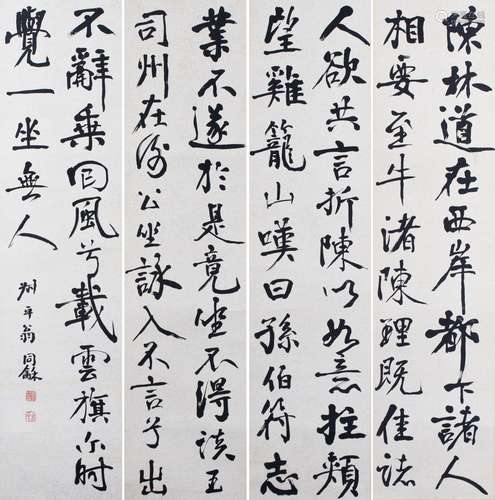 陳林道在西岸都下諸人
相要至牛渚陳理既佳諸
人欲共言折陳以如意拄頰
望雞籠山嘆曰孫伯符志
業不遂於是竟坐不得談王
司州在謝公坐詠入不言兮出
不辭乘回風兮載雲旗尔時
覺一坐無人
翁同龢